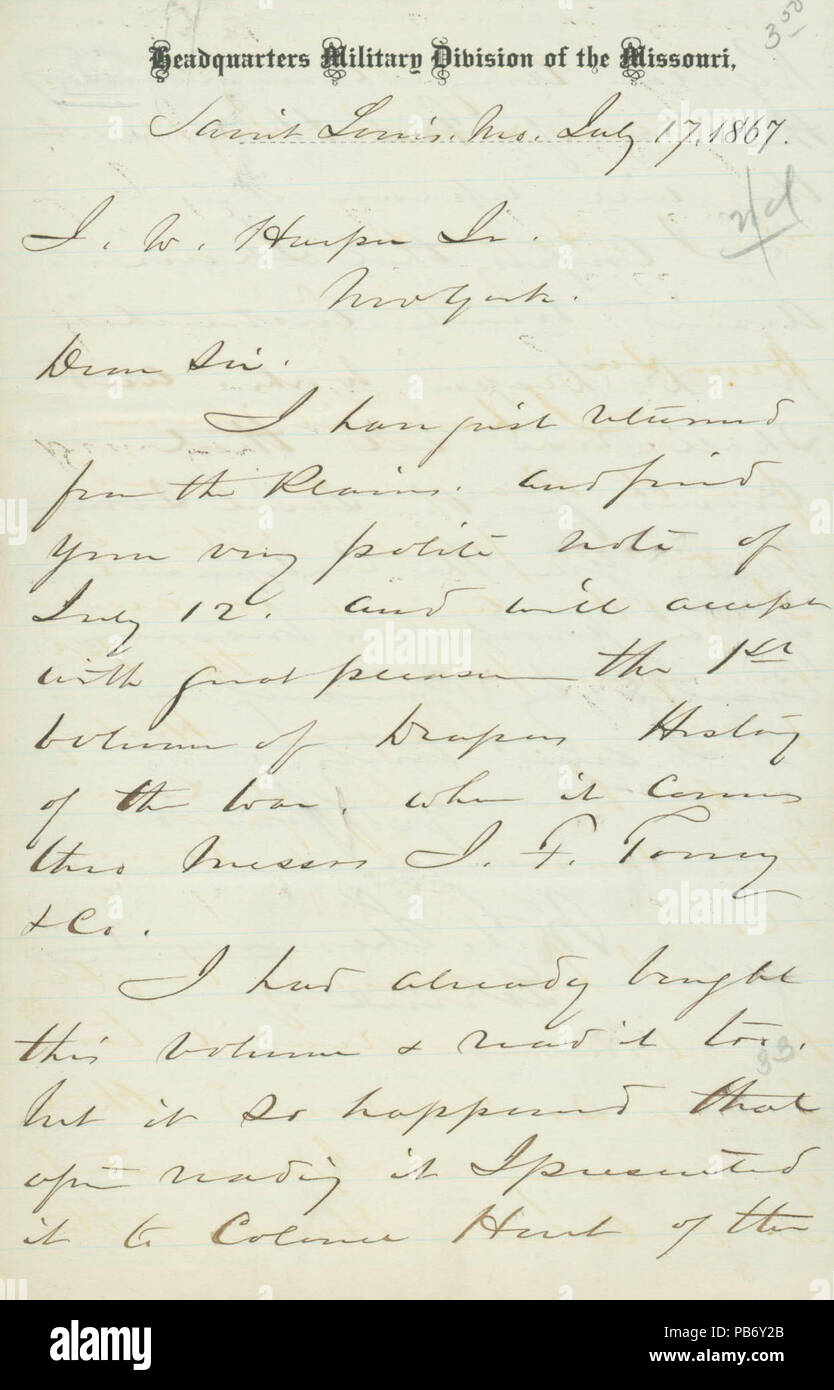 3 50
Headquarters Military Division of the Missouri,
Saint Louis, Mo. July 17, 1867.
J. W. Harper Jr.
New York.
Dear Sir.
I have just returned
from the Plains. and find
your very polite note of
July 12. and will accept
with great pleasure the 1st
volume of Drapers History
of the War. when it comes
thro Messrs J. F. Torrey
& Co.
I had already bought
this volume & read it too.
but it so happened that
after reading it I presented
it to Colonel Hunt of the
33
alamy
Image ID: PB6Y2B
www.alamy.com